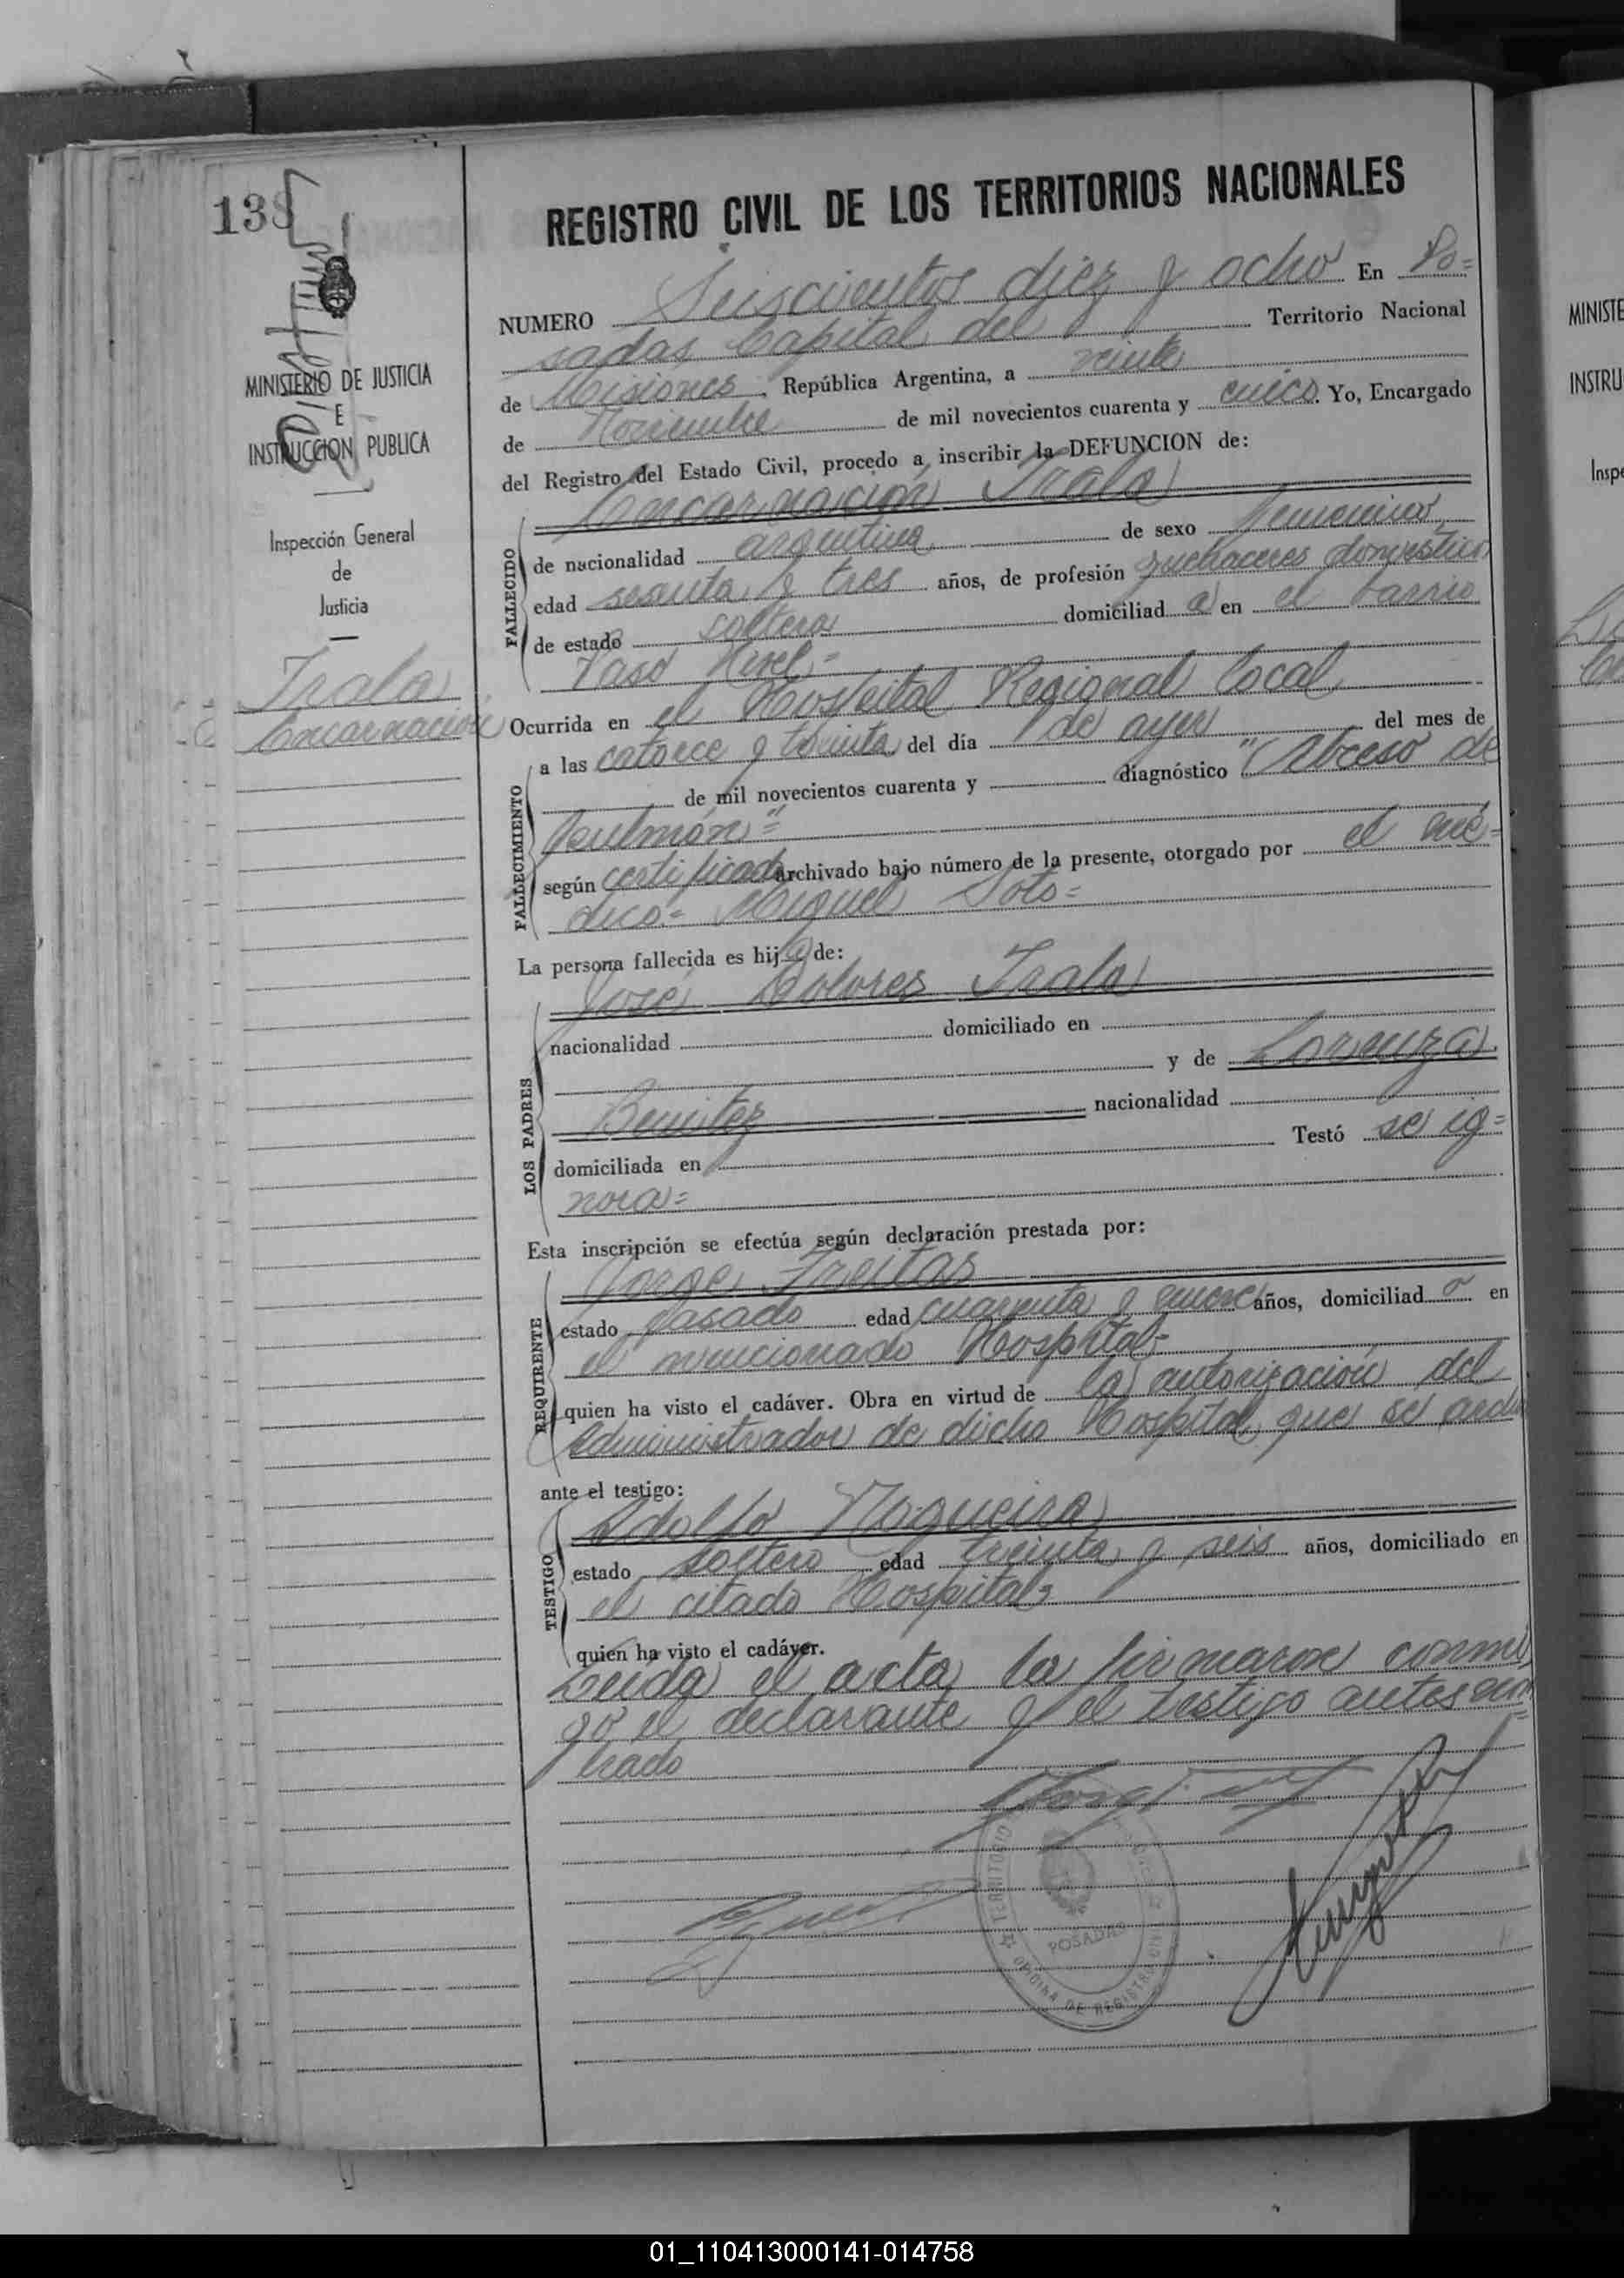 138
REGISTRO CIVIL DE LOS TERRITORIOS NACIONALES
NUMERO Seiscientos diez y ocho En Po=
sadas Capital del Territorio Nacional
de Misiones, República Argentina, a veinte
de Noviembre de mil novecientos cuarenta y cinco. Yo, Encargado
del Registro del Estado Civil, procedo a inscribir la DEFUNCION de:
MINISTERIO DE JUSTICIA
E
INSTRUCCION PUBLICA
Inspección General
de
Justicia
Irala
Encarnación
FALLECIDO
Encarnación Irala
de nacionalidad argentina de sexo femenino,
edad sesenta y tres años, de profesión quehaceres domésticos
de estado soltera domiciliad a en el barrio
Vaso Nivel=
Ocurrida en el Hospital Regional local
FALLECIMIENTO
a las catorce y treinta del día de ayer del mes de
de mil novecientos cuarenta y diagnóstico "Abceso de
pulmón"=
según certificado archivado bajo número de la presente, otorgado por el mé=
dico= Miguel Soto=
La persona fallecida es hij a de:
LOS PADRES
José Dolores Irala
nacionalidad domiciliado en
y de Lorenza
Benitez nacionalidad
domiciliada en Testó se ig=
nora=
Esta inscripción se efectúa según declaración prestada por:
REQUIRENTE
Jorge Freitas
estado casado edad cuarenta y nueve años, domiciliad o en
el mencionado Hospital=
quien ha visto el cadáver. Obra en virtud de la autorización del
administrador de dicho Hospital que se
ante el testigo:
TESTIGO
Adolfo Nogueira
estado soltero edad treinta y seis años, domiciliado en
el citado Hospital=
quien ha visto el cadáver.
Leída el acta la firmaron conmi
go el declarante y el testigo antes nom=
brado
TERRITORIO
POSADAS
OFICINA DE REGISTRO CIVIL
MINISTE
INSTRU
Inspe
01_110413000141-014758